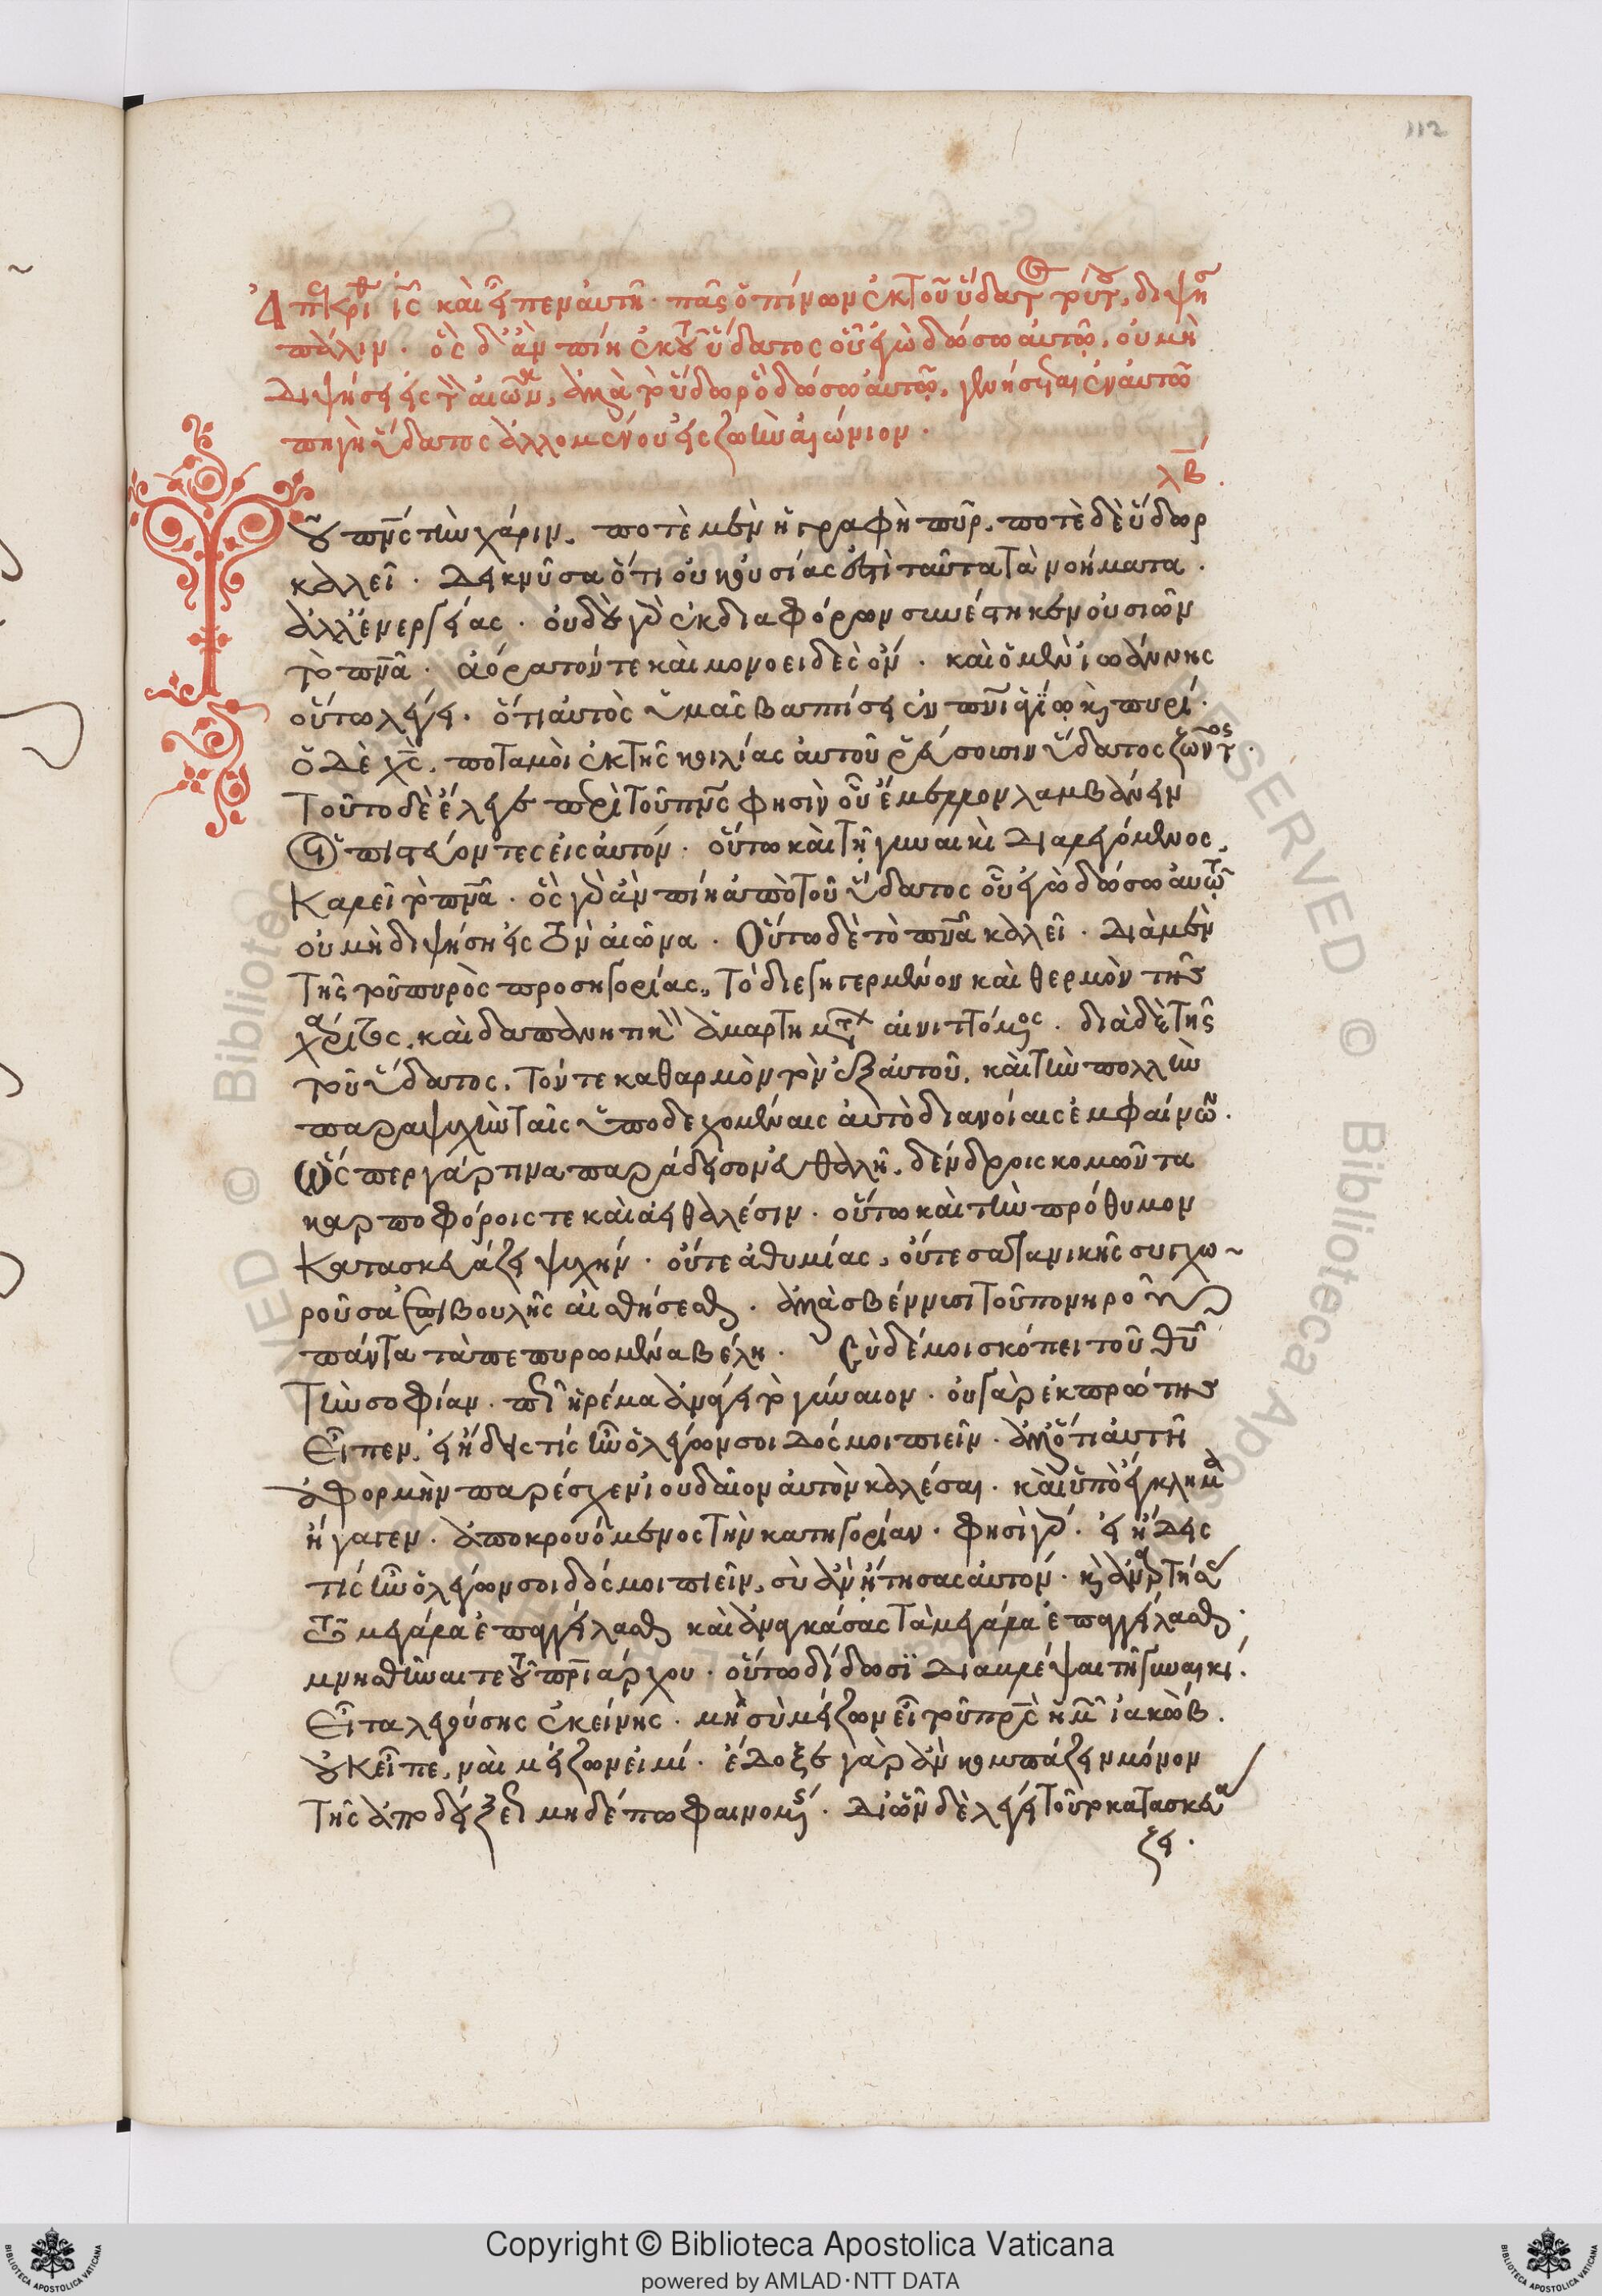 112
Ἀπεκρίθη ἰς καὶ εἶπεν αὐτῆ· πᾶς ὁ πίνων ἐκ τοῦ ὕδατος τούτου, διψήσει
πάλιν· ὃς δ' ἂν πίη ἐκ τοῦ ὕδατος οὗ ἐγὼ δώσω αὐτῷ, οὐ μὴ
διψήσει εἰς τὸν αἰῶνα, ἀλλὰ τὸ ὕδωρ ὃ δώσω αὐτῷ, γενήσεται ἐν αὐτῶ
πηγὴ ὕδατος ἁλλομένου εἰς ζωὴν αἰώνιον·
λβ.
Τοῦ πνς τὴν χάριν, ποτὲ μὲν ἡ γραφὴ πῦρ, ποτὲ δὲ ὕδωρ
καλεῖ· δεικνῦσα ὅτι οὐκ οὐσίας ἐστὶ ταῦτα τὰ νοήματα·
ἀλλ' ἐνεργείας· οὐδὲ γὰρ ἐκ διαφόρων συνέστηκεν οὐσιῶν
τὸ πνα· ἀόρατόν τε καὶ μονοειδὲς ὄν· καὶ ὁ μὲν ἰωάννης
οὕτω λέγει· ὅτι αὐτὸς ὑμᾶς βαπτίσει ἐν πνι ἁγίῳ καὶ πυρί·
ὁ δὲ χς, ποταμοὶ ἐκ τῆς κοιλίας αὐτοῦ ῥεύσουσιν ὕδατος ζῶντος·
Τοῦτο δὲ ἔλεγε περὶ τοῦ πνς φησὶν οὗ ἔμελλον λαμβάνειν
οἱ πιστεύοντες εἰς αὐτόν· οὕτω καὶ τῇ γυναικὶ διαλεγόμενος,
καλεῖ τὸ πνα· ὃς γὰρ ἂν πίη ἀπὸ τοῦ ὕδατος οὗ ἐγὼ δώσω αὐτῷ
οὐ μὴ διψήση εἰς τὸν αἰῶνα· Οὕτω δὲ τὸ πνα καλεῖ· διὰ μὲν
τῆς τοῦ πυρὸς προσηγορίας, τὸ διεγηγερμένον καὶ θερμὸν τῆς
χάριτος, καὶ δαπανητικὸν ἁμαρτημάτων αἰνιττόμενος· διὰ δὲ τῆς
τοῦ ὕδατος, τόν τε καθαρμὸν τὸν ἐξ αὐτοῦ, καὶ τὴν πολλὴν
παραψυχὴν ταῖς ὑποδεχομέναις αὐτὸ διανοίαις ἐμφαίνων·
Ὥσπερ γάρ τινα παράδεισον ἀειθαλῆ, δένδροις κομῶντα
καρποφόροις τε καὶ ἀειθαλέσιν· οὕτω καὶ τὴν πρόθυμον
κατασκευάζει ψυχήν· οὔτε ἀθυμίας, οὔτε σατανικῆς συγχω-
ροῦσα ἐπιβουλῆς αἰσθήσεσθαι· ἀλλὰ σβέννυσι τοῦ πονηροῦ
πάντα τὰ πεπυρωμένα βέλη· Σὺ δέ μοι σκόπει τοῦ θυ
τὴν σοφίαν· πῶς ἠρέμα ἀνάγει τὸ γύναιον· οὐ γὰρ ἐκ πρώτης
εἶπεν, εἰ ᾔδεις τίς ἐστιν ὁ λέγων σοι δός μοι πιεῖν· ἀλλ' ὅτι αὐτῆ
ἀφορμὴν παρέσχεν ἰουδαῖον αὐτὸν καλέσαι· καὶ ὑπὸ ἔγκλημα
ἤγαγεν· ἀποκρουόμενος τὴν κατηγορίαν· φησὶ γὰρ· εἰ ᾔδεις
τίς ἐστιν ὁ λέγων σοι δός μοι πιεῖν, σὺ ἂν ᾔτησας αὐτόν· καὶ
τῶ μεγάλα ἐπαγγείλασθαι καὶ ἀναγκάσας τὰ μεγάλα ἐπαγγείλασθαι
μνησθῆναί τε τοῦ πριάρχου· οὕτω δίδωσι διαβλέψαι τῆ γυναικί·
Εἶτα λεγούσης ἐκείνης· μὴ σὺ μείζων εἶ τοῦ πρς ἡμῶν ἰακώβ.
οὐκ εἶπε, ναὶ μείζων εἰμί· ἔδοξε γὰρ ἂν κομπάζειν μόνον
τῆς ἀποδείξεως μηδέπω φαινομένης· δι' ὧν δὲ λέγει τοῦτο κατασκευά
ζει·
Copyright © Biblioteca Apostolica Vaticana
powered by AMLAD·NTT DATA